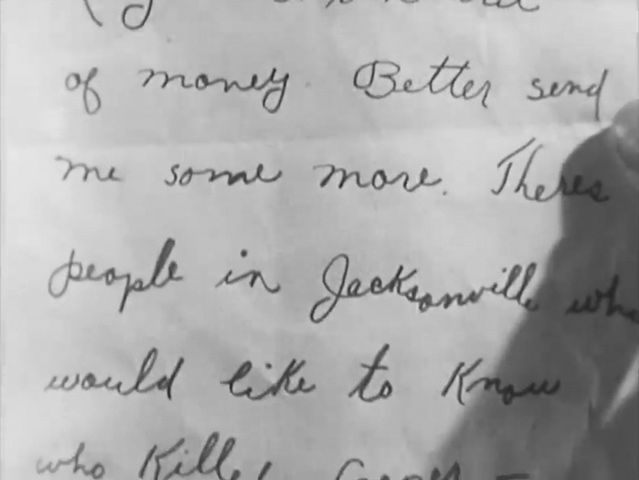 of money. Better send
me some more. Theres
people in Jacksonville who
would like to Know
who Killed